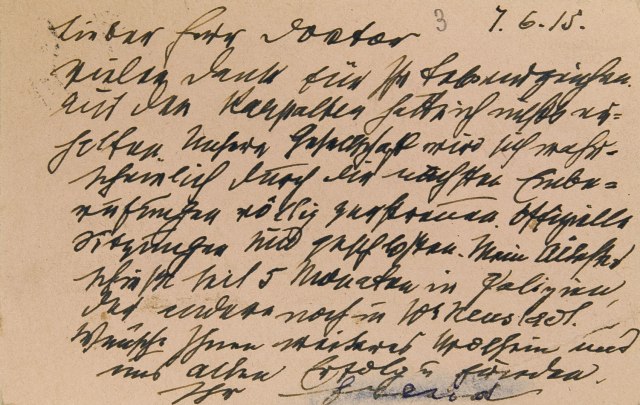 3 7.6.15.
Lieber Herr Doctor
Vielen Dank für Ihr Lebenszeichen.
Aus den Karpathen hatte ich nichts er-
halten. Unsere Gesellschaft wird sich wahr-
scheinlich durch die nächsten Einbe-
rufungen völlig zerstreuen. Offizielle
Sitzungen sind geschlossen. Mein Ältester
seit 5 Monaten in Galizien,
der andere noch in Wr Neustadt.
Wünsche Ihnen weiteres Wolsein und
uns allen Erfolg u Frieden.
Ihr Freud